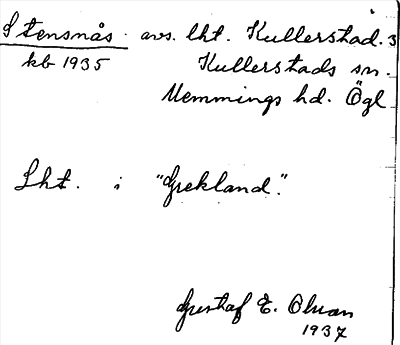 Stensnås avs. lht. Kullerstad. 3
kb 1935 Kullerstads sn.
Memmings hd. Ögl
Lht. i "Grekland".
Gustaf E. Olson
1937